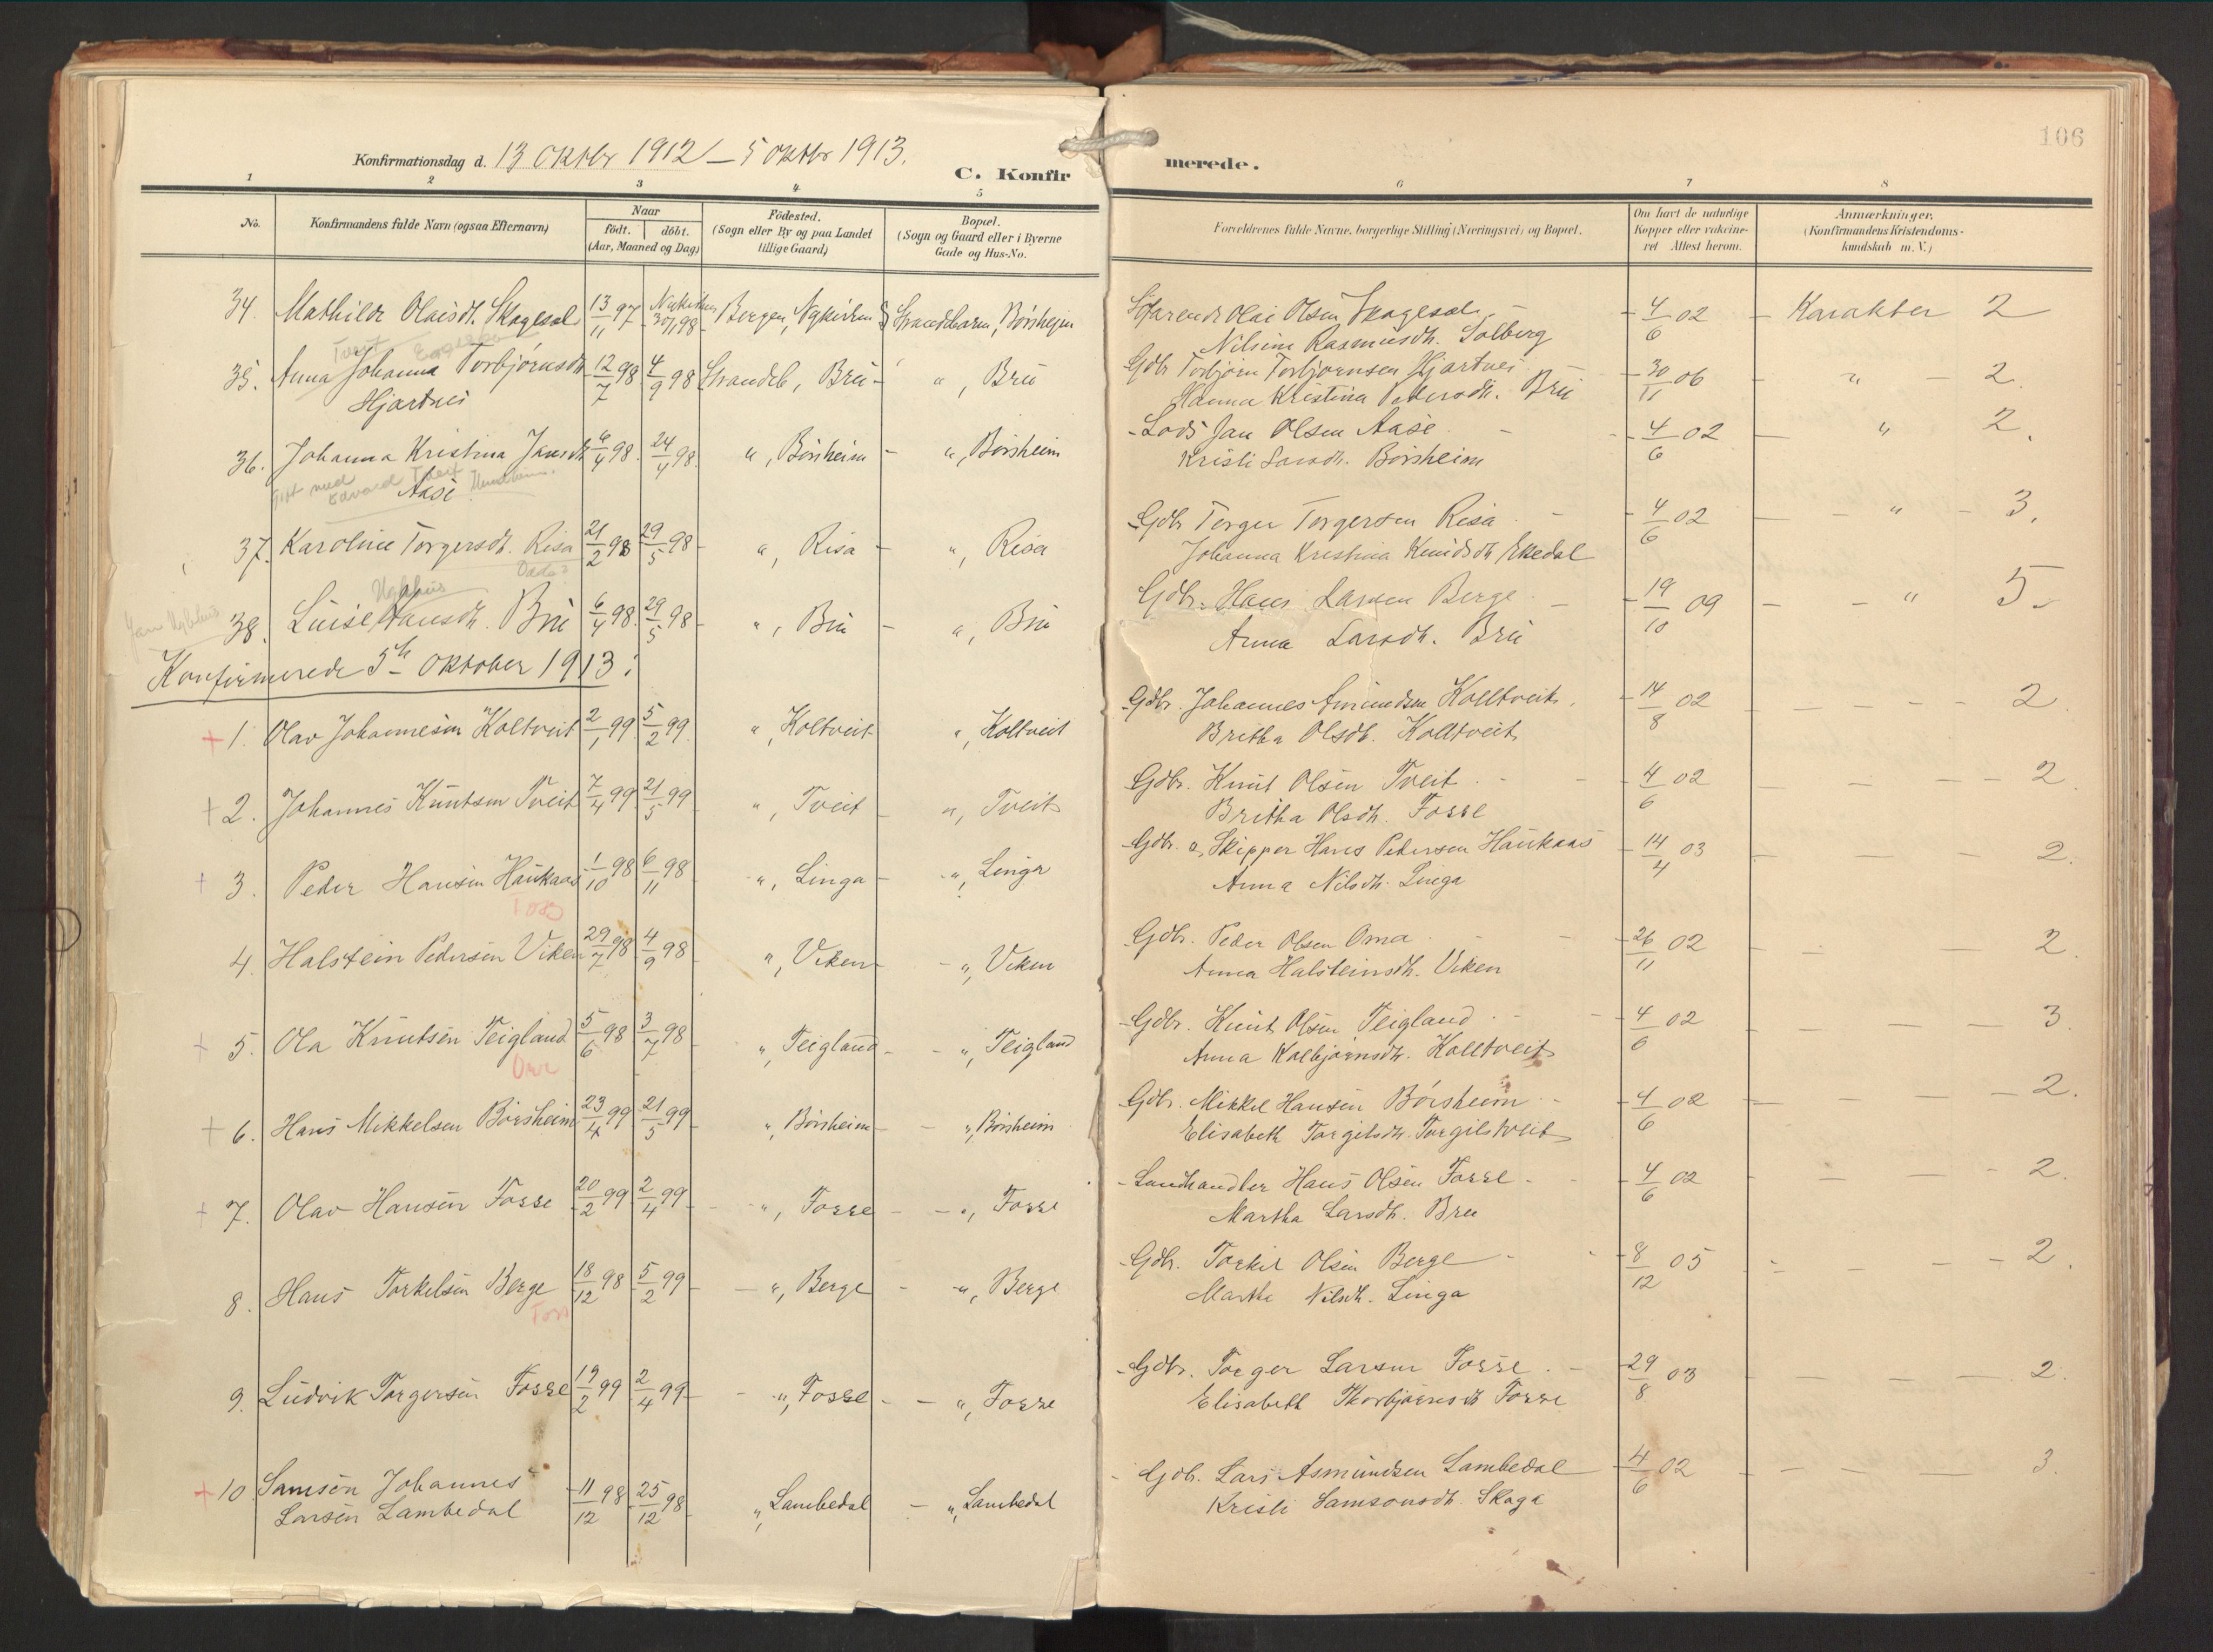 106
Konfirmationsdag d. 13 Oktbr 1912 – 5 Oktbr 1913.
C. Konfir
merede.
1 2 3 4 5 6 7 8
No.
Konfirmandens fulde Navn (ogsaa Efternavn)
Naar
födt. döbt.
(Aar, Maaned og Dag)
Födested.
(Sogn eller By og paa Landet
tillige Gaard)
Bopæl.
(Sogn og Gaard eller i Byerne
Gade og Hus-No.
Forældrenes fulde Navne, borgerlige Stilling (Næringsvei) og Bopæl.
Om havt de naturlige
Kopper eller vakcine-
ret Attest herom.
Anmærkninger.
(Konfirmandens Kristendoms-
kundskab m. V.)
34. Mathilde Olaisdt. Skagesal 13/11 97 Nykirken 30/1 98 Bergen, Nykirken Strandebarm, Börsheim Olai Olsen Skagesal 4/6 02 – Karakter 2
Nilsine Rasmusdh. Solberg
35. Anna Johanna Torbjörnsdh 12/7 98 4/9 98 Strandeb, Brú – „, Brú Gdbr Torbjörn Torbjörnsen Hjartnes 30/11 06 „ – 2.
Hjartnes Hanna Kristina Pedersdh. Brú
36. Johanna Kristina Jansdh 6/4 98. 24/4 98. „, Börsheim – „, Börsheim – Lods Jan Olsen Aase – 4/6 02 – „ 2.
Aase Kristi Larsdh. Börsheim
Gift med Edvard Tveit
37. Karoline Torgersdh. Risa 21/2 98 29/5 98 – „, Risa – „, Risa Gdbr Torger Torgersen Risa – 4/6 02 – – „ – 3.
Johanna Kristina Knudsdh Ekedal
38. Luise Hansdh. Brú 6/4 98. 29/5 98 – „, Brú – „, Brú Gdbr. Hans Larsen Berge – 19/10 09 – – „ 5.
Anna Larsdh. Brú
Konfirmerede 5te Oktober 1913:
+ 1. Olav Johannesen Koltveit 2/1 99 5/2 99. „, Koltveit „, Koltveit Gdbr. Johannes Amundsen Kolltveit. 14/8 02 – – – – 2.
Britha Olsdh. Kolltveit
+ 2. Johannes Knutsen Tveit 7/4 99 21/5 99 „, Tveit – „, Tveit Gdbr. Knut Olsen Tveit – 4/6 02 – – – – 2.
Britha Olsdh. Fosse
+ 3. Peder Hansen Haukaas 1/10 98 6/11 98 „, Linga – „, Linga Gdbr. o. Skipper Hans Pedersen Haukaas – 14/4 03 – – – 2.
Anna Nilsdh. Linga
4. Halstein Pedersen Viken 29/7 98 4/9 98 „, Viken – – „, Viken Gdbr. Peder Olsen Oma – 26/11 02 – – – 2.
Anna Halsteinsdh. Viken
+ 5. Ola Knutsen Teigland 5/6 98 3/7 98 – „, Teigland – – „, Teigland Gdbr. Knut Olsen Teigland – 4/6 02 – – – – 3.
Anna Kolbjörnsdh. Kolltveit
+ 6. Hans Mikkelsen Börsheim 23/4 99 21/5 99 – „, Börsheim – – „, Börsheim Gdbr. Mikkel Hansen Börsheim – 4/6 02 – – – – 2.
Elisabeth Torgilsdh. Torgilstveit
+ 7. Olav Hansen Fosse 20/2 99 2/4 99 – „, Fosse – – „, Fosse Landhandler Hans Olsen Fosse – 4/6 02 – – – – 2.
Martha Larsdh. Bru
8. Hans Torkelsen Berge 18/12 98 5/2 99 – „, Berge – „, Berge Gdbr. Torkel Olsen Berge – 8/12 05 – – – – 2.
Martha Nilsdh. Linga
9. Ludvik Torgersen Fosse 19/2 99 2/4 99 – – „, Fosse – – „, Fosse Gdbr. Torger Larsen Fosse – 29/8 03 – – – – 2.
Elisabeth Thorbjörnsdh Fosse
+ 10 Samson Johannes 11/12 98 25/12 98 „, Lambedal – „, Lambedal Gdbr. Lars Asmundsen Lambedal 4/6 02 – – – 3.
Larsen Lambedal Kristi Samsonsdh. Skaga